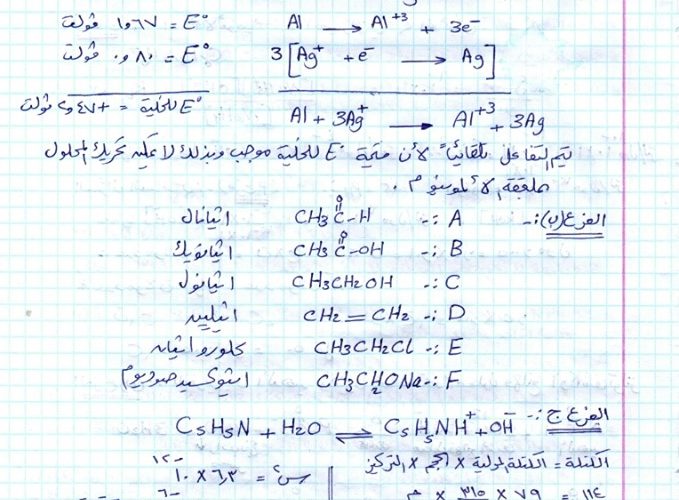 Al → Al⁺³ + 3e⁻ E° = ١٫٦٧ ڤولت
3 [Ag⁺ + e⁻ → Ag] E° = ٠٫٨٠ ڤولت
Al + 3Ag⁺ → Al⁺³ + 3Ag E° للخلية = +٢٫٤٧ ڤولت
يتم التفاعل تلقائياً لأن قيمة E° للخلية موجب وبذلك لا يمكن تحريك المحلول
بملعقة الألومنيوم .
الفرع (ب) :-
A :- CH3C(=O)-H ايثانال
B :- CH3C(=O)-OH ايثانويك
C :- CH3CH2OH ايثانول
D :- CH2=CH2 اثيلين
E :- CH3CH2Cl كلورو ايثان
F :- CH3CH2ONa ايثوكسيد صوديوم
الفرع ج :-
C5H5N + H2O ⇌ C5H5NH⁺ + OH⁻
الكتلة = الكتلة المولية × الحجم × التركيز
س٢ = ٦٫٣ × ١٠⁻¹²